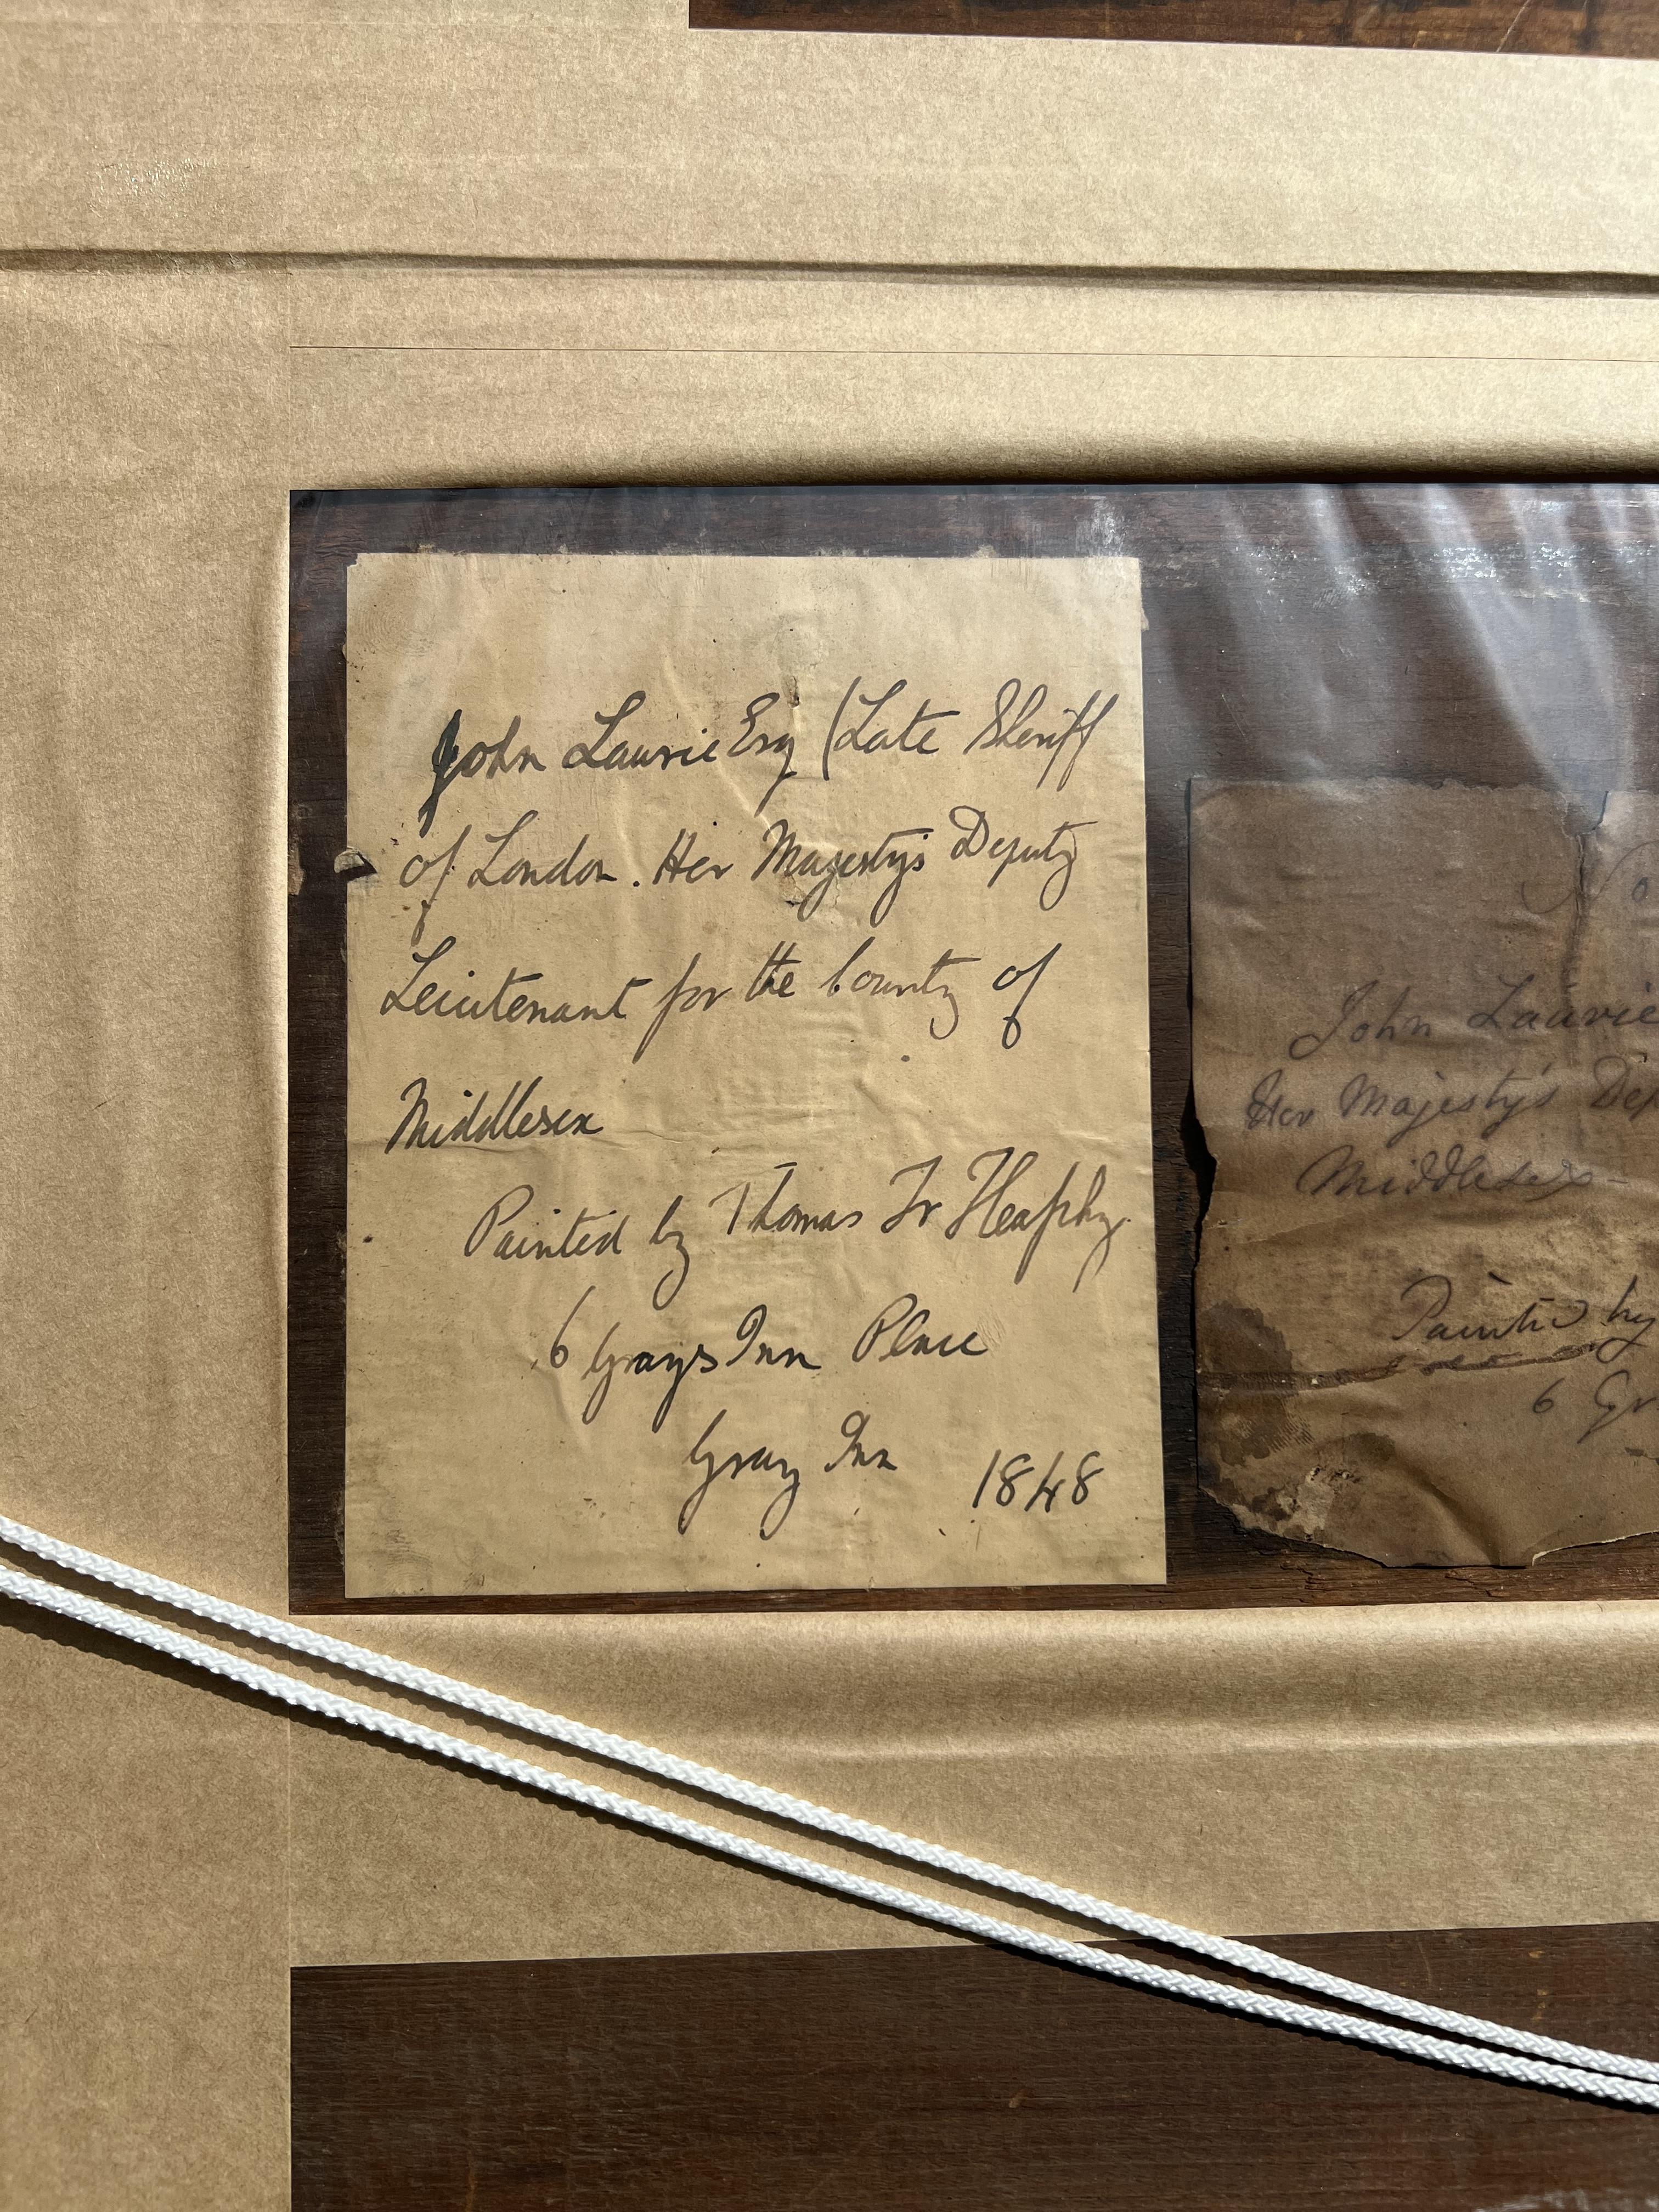 John Laurie Esq (Late Sheriff
of London. Her Majesty's Deputy
Leiutenant for the County of
Middlesex
Painted by Thomas Fr Heaphy.
6 Grays Inn Place
Gray Inn 1848
No
John Laurie
Her Majesty's Dep
Middlesex -
Painted by
6 Gr